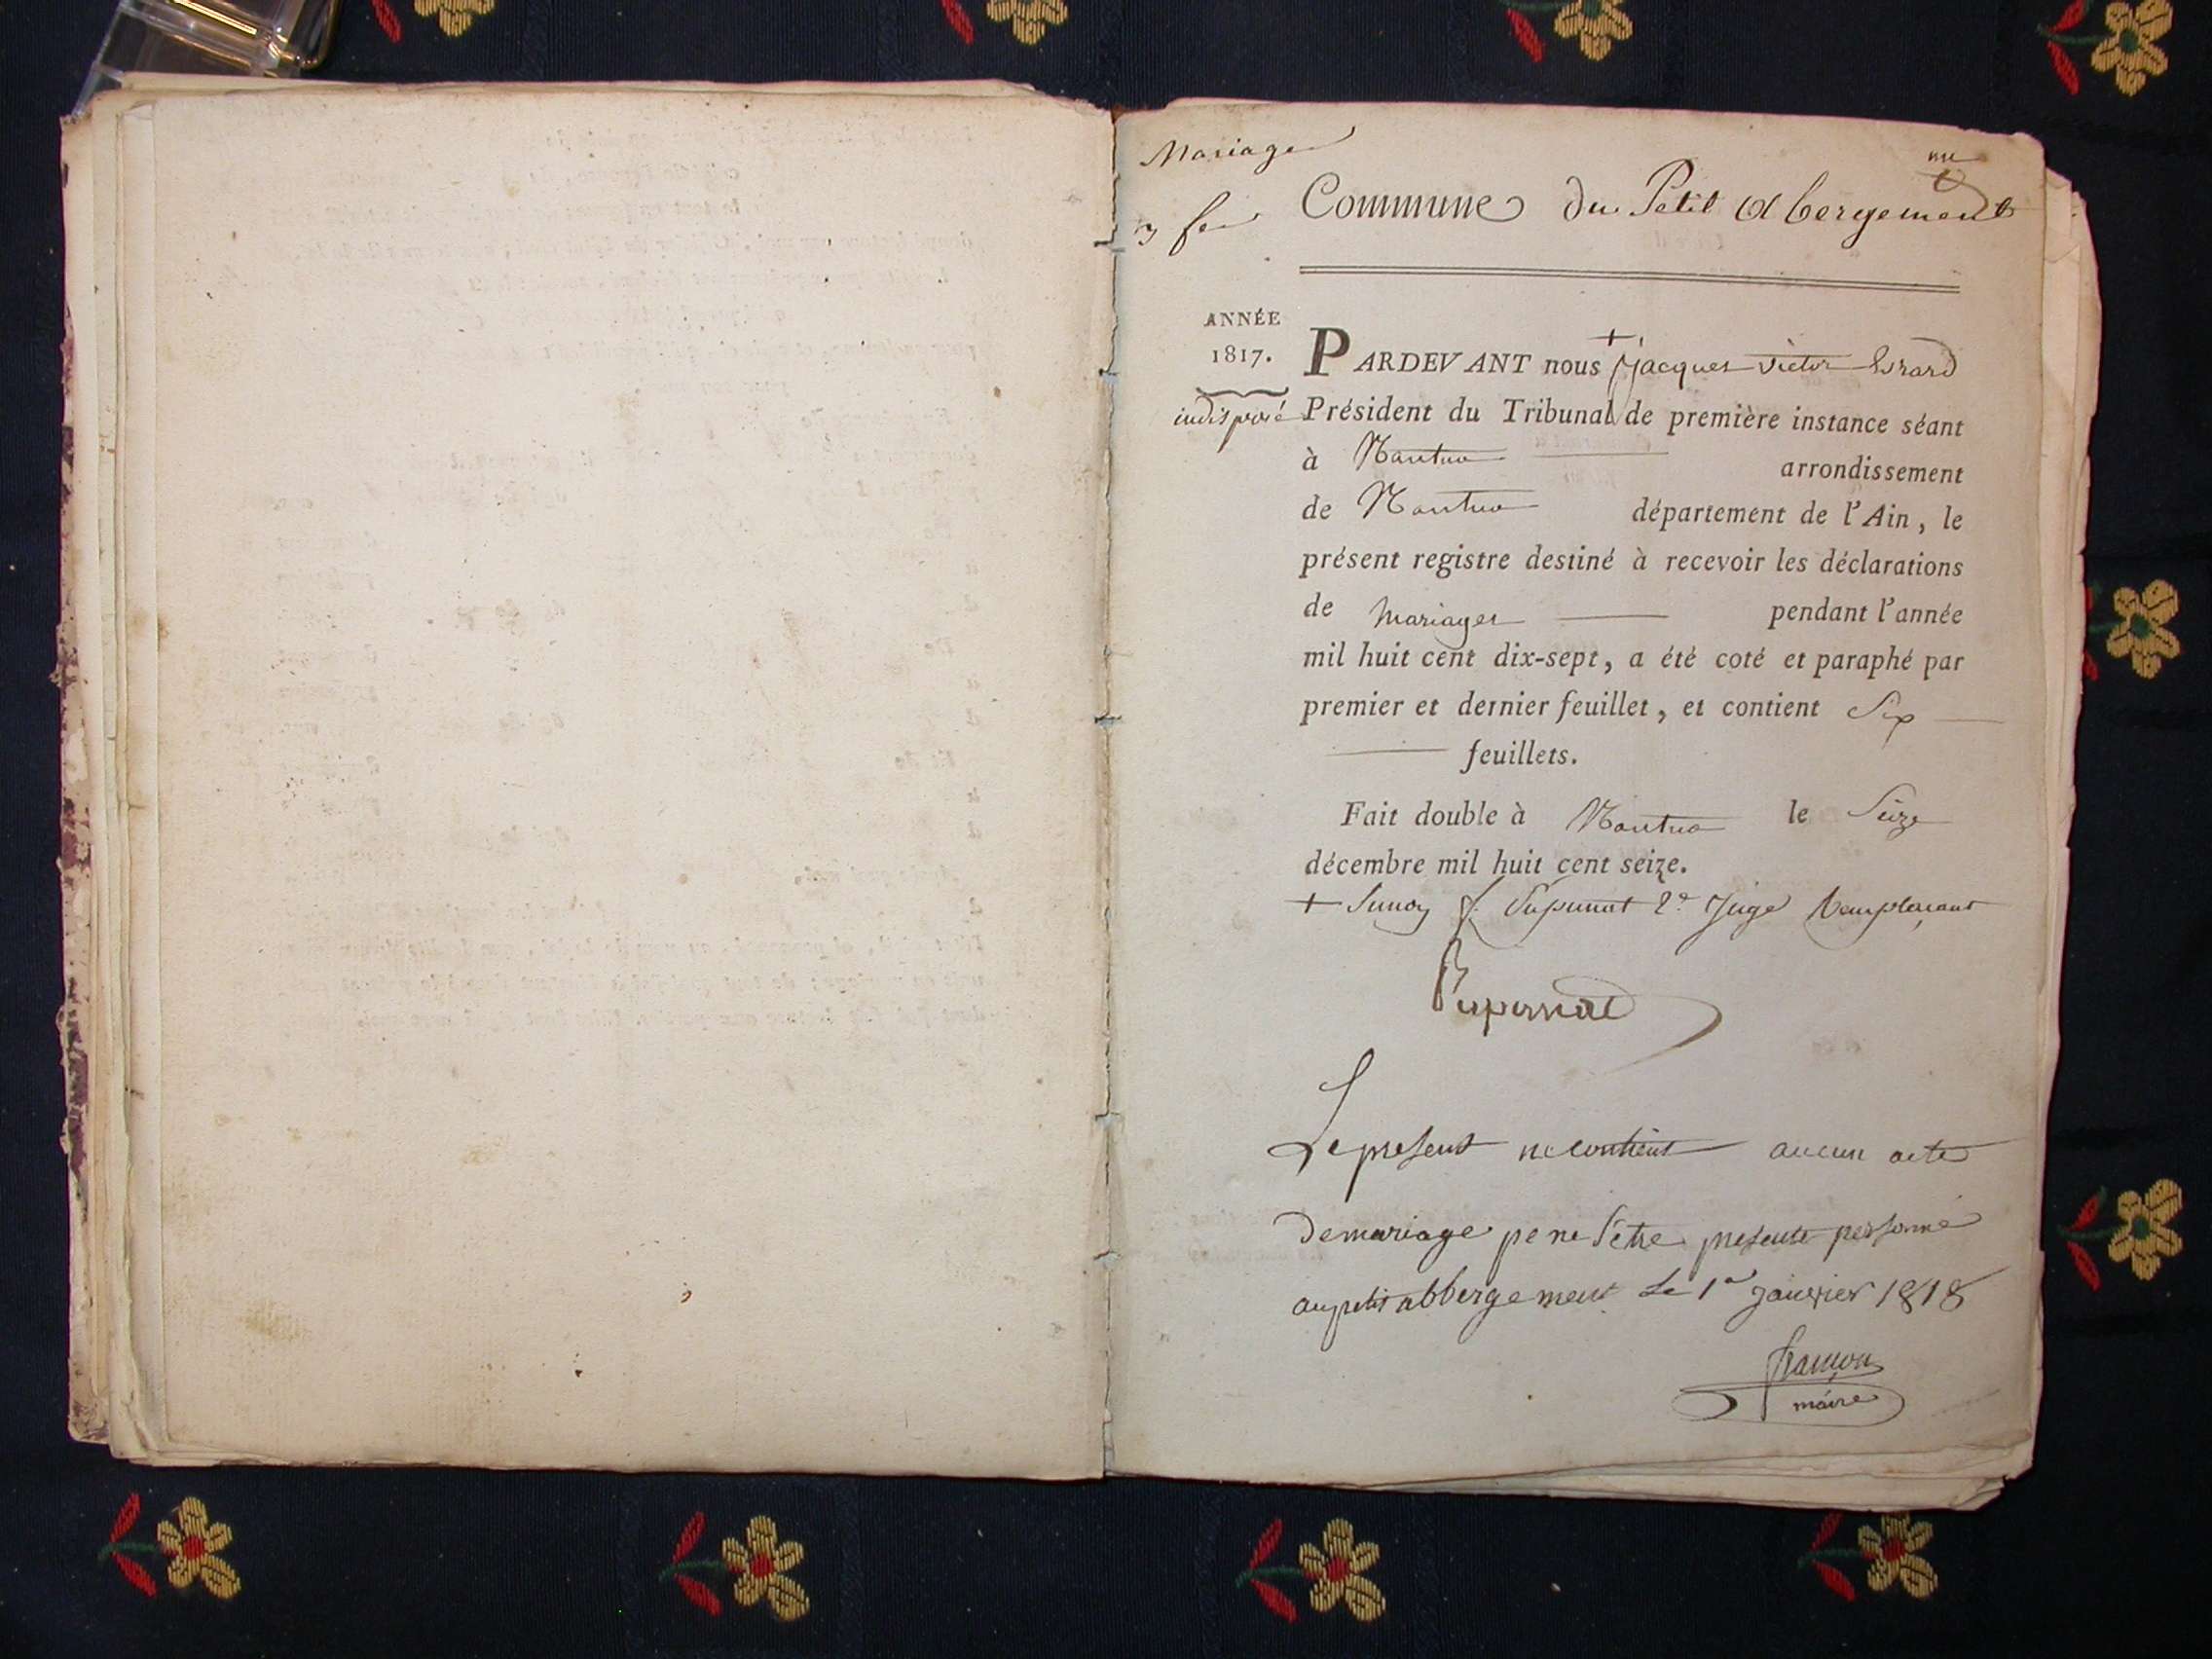 Mariage
Commune du Petit Abergement
3 fe
ANNÉE
1817.
indisposé
PARDEVANT nous + Jacques Victor Evrard
Président du Tribunal de première instance séant
à Nantua arrondissement
de Nantua département de l'Ain, le
présent registre destiné à recevoir les déclarations
de Mariages pendant l'année
mil huit cent dix-sept, a été coté et paraphé par
premier et dernier feuillet, et contient Six
feuillets.
Fait double à Nantua le Seize
décembre mil huit cent seize.
+ 2e Juge Remplaçant
Le present ne contient aucun acte
de mariage pr ne s'etre presenté personne
au petit abbergement Le 1er janvier 1818
maire